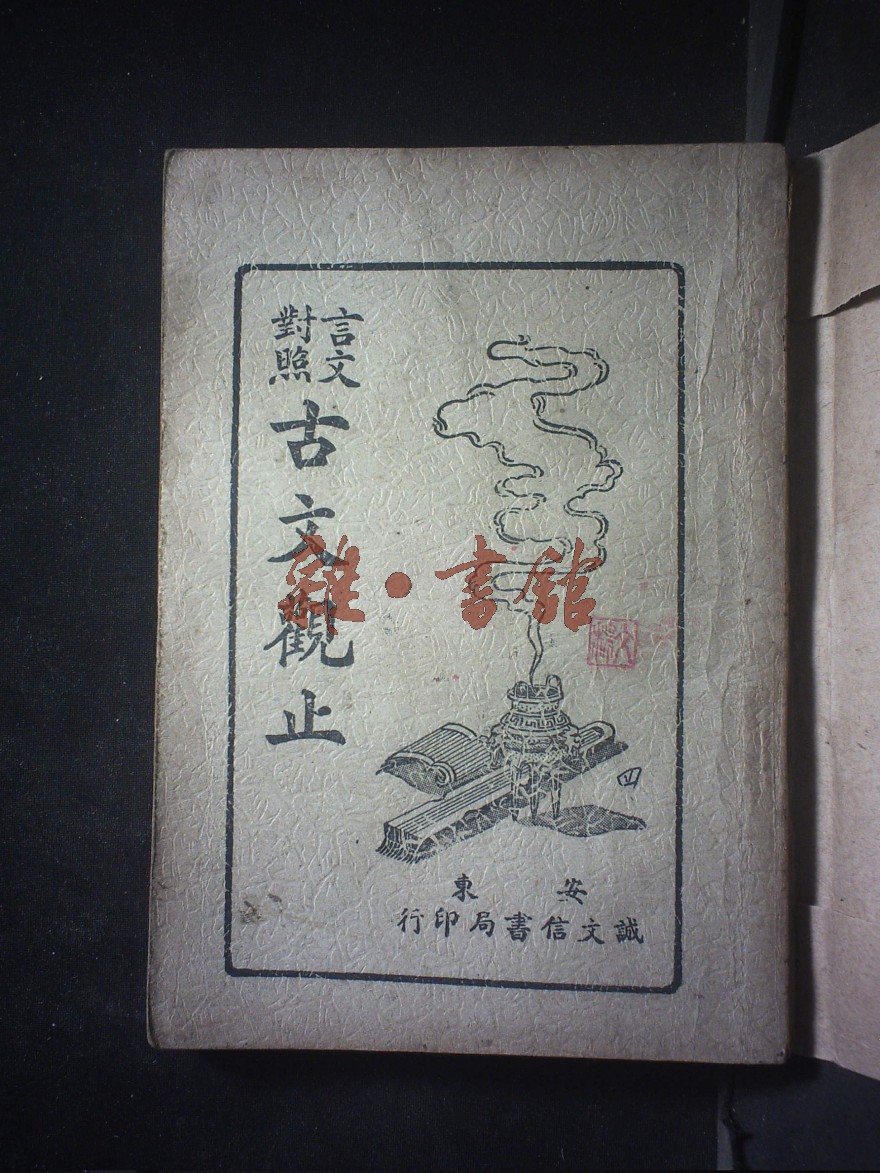 言文
對照
古文觀止
雜·書館
四
安東
誠文信書局印行